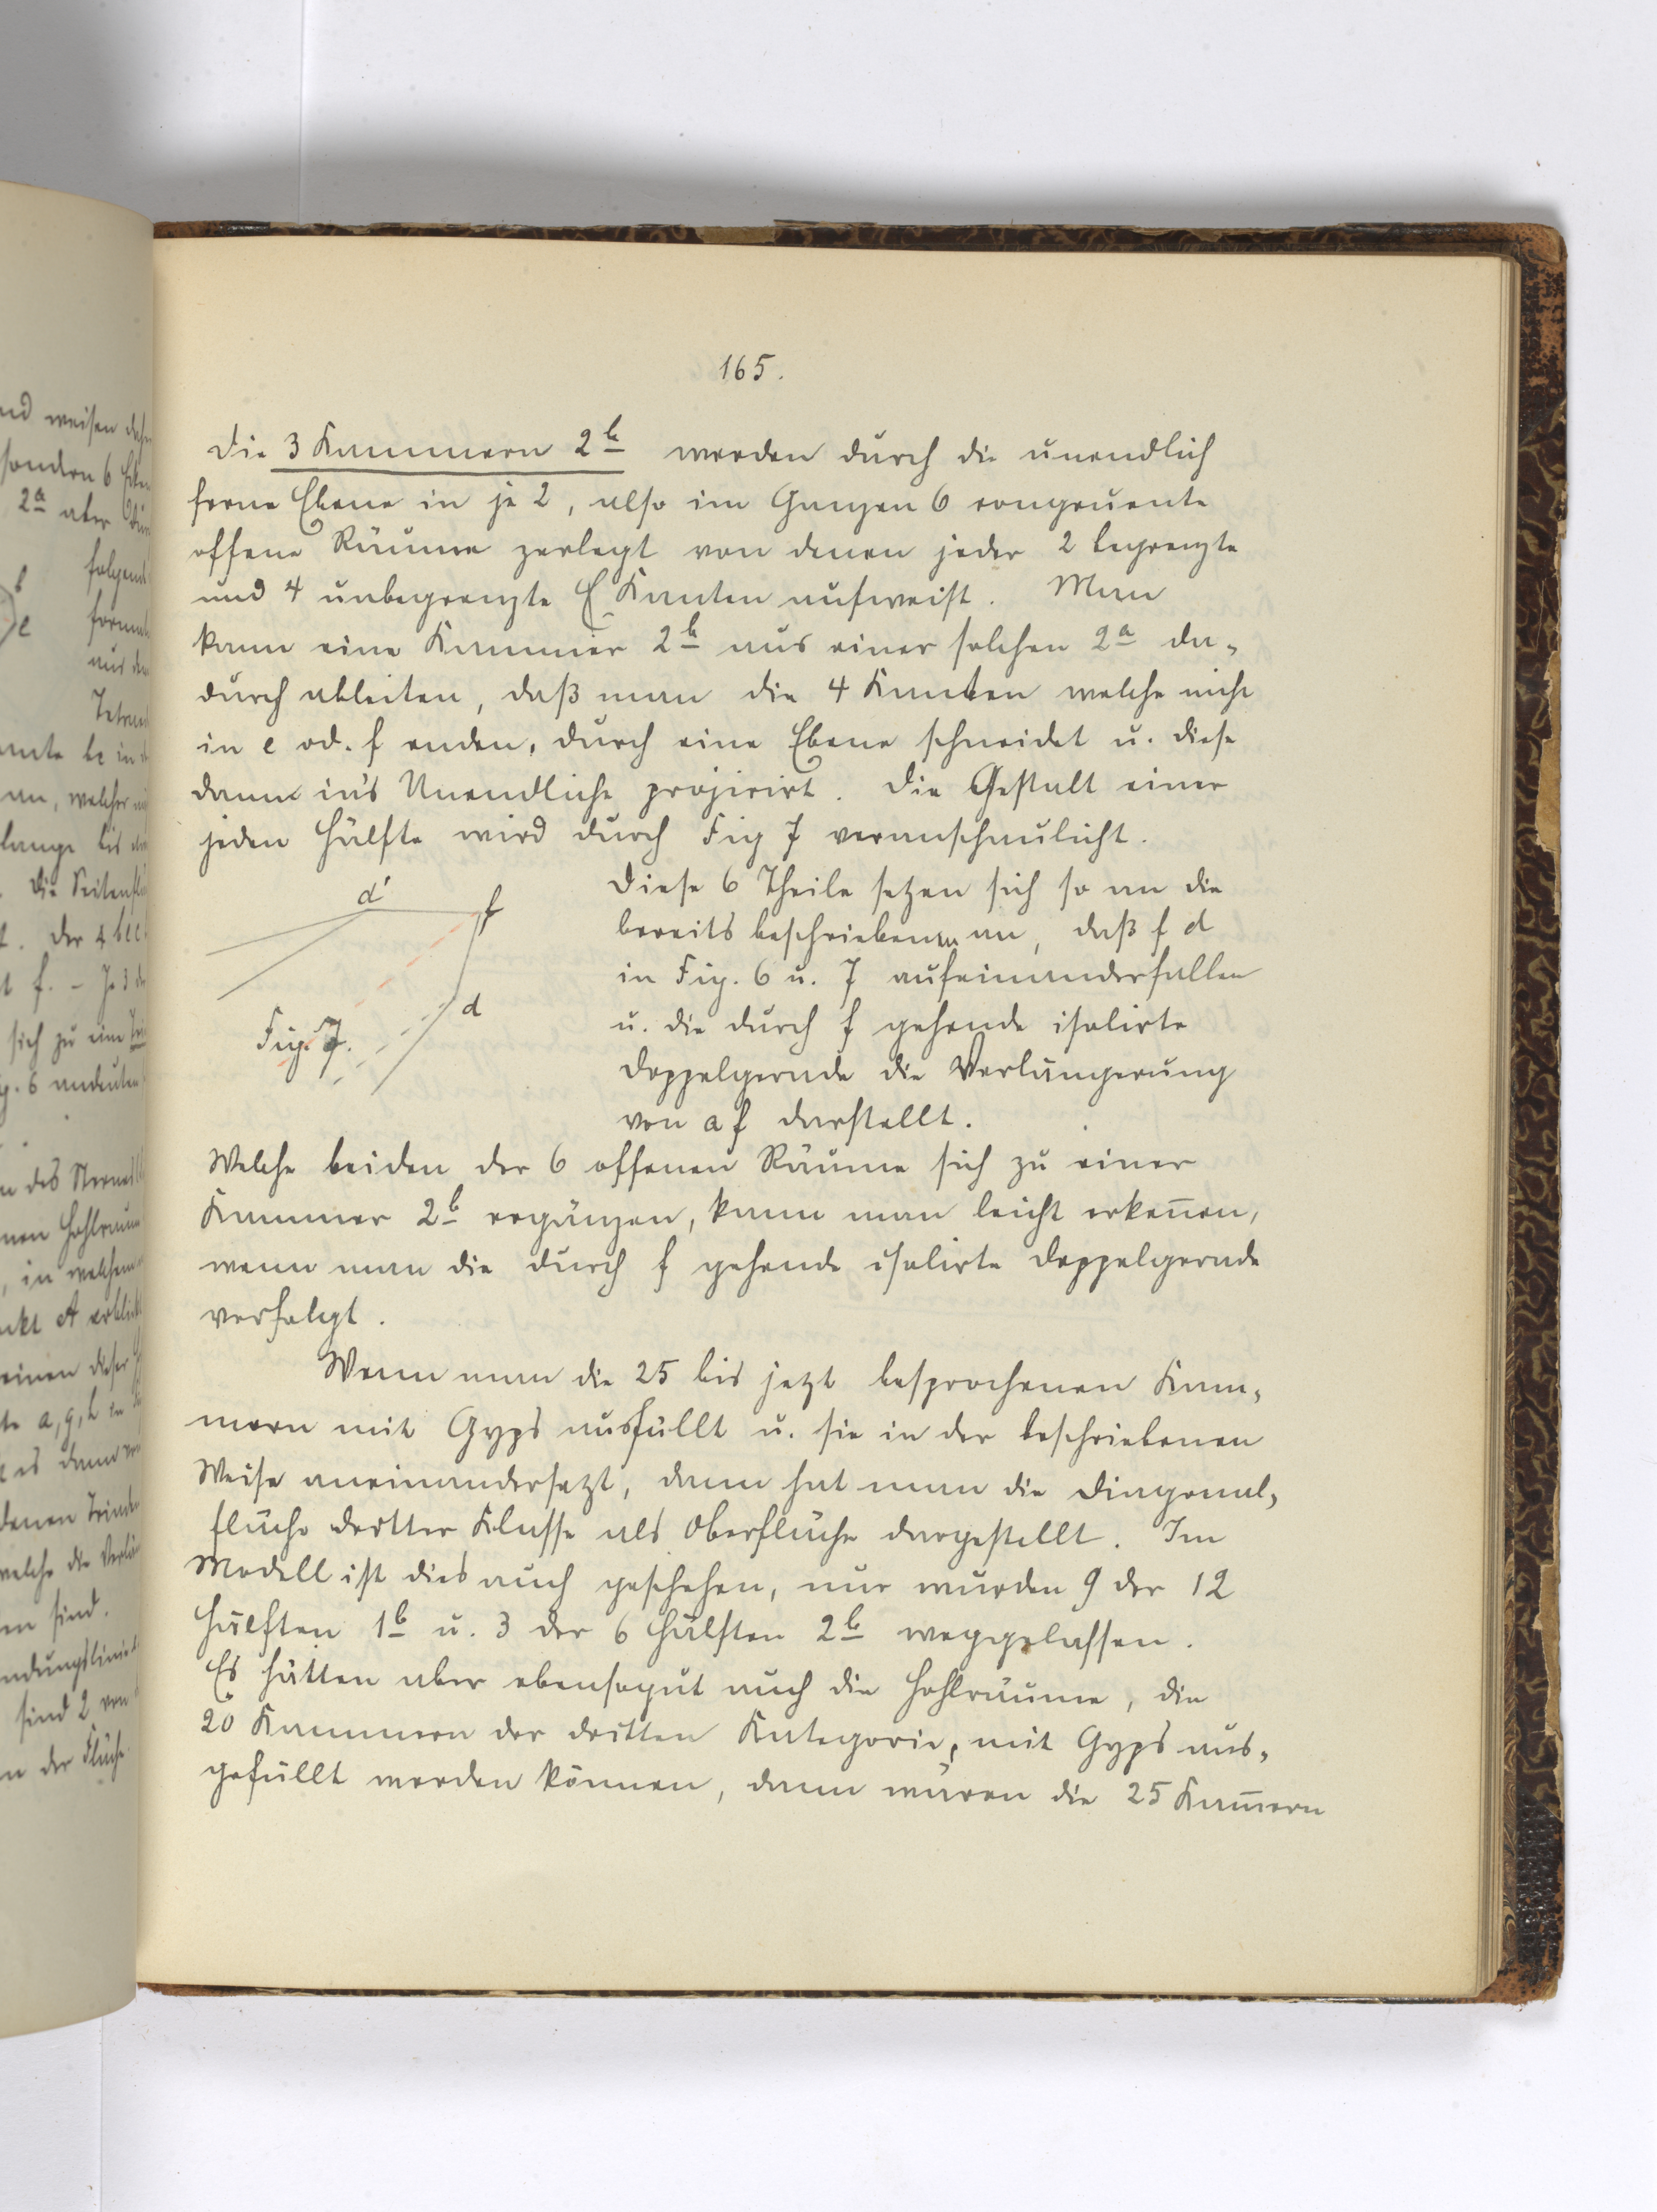 165.
Die 3 Kammern 2b werden durch die unendlich
ferne Ebene in je 2, also im Ganzen 6 congruente
offene Räume zerlegt von denen jeder 2 begrenzte
und 4 unbegrenzte Kanten aufweist. Man
kann eine Kammer 2b aus einer solchen 2a da-
durch ableiten, daß man die 4 Kanten welche nicht
in e od. f enden, durch eine Ebene schneidet u. diese
dann in's Unendliche projicirt. Die Gestalt einer
jeden Hälfte wird durch Fig 7 veranschaulicht.
d' f
d
Fig. 7.
Diese 6 Theile setzen sich so an die
bereits beschriebenen an, daß f d
in Fig. 6 u. 7 aufeinanderfallen
u. die durch f gehende isolirte
Doppelgerade die Verlängerung
von a f darstellt.
Welche beiden der 6 offenen Räume sich zu einer
Kammer 2b ergänzen, kann man leicht erkeñen,
wenn man die durch f gehende isolirte Doppelgerade
verfolgt.
Wenn man die 25 bis jetzt besprochenen Kam-
mern mit Gyps ausfüllt u. sie in der beschriebenen
Weise aneinandersetzt, dann hat man die Diagonal-
fläche dritter Klasse als Oberfläche dargestellt. Im
Modell ist dies auch geschehen, nur wurden 9 der 12
Hälften 1b u. 3 der 6 Hälften 2b weggelassen.
Es hätten aber ebensogut auch die Hohlräume, die
20 Kammern der dritten Kategorie, mit Gyps aus-
gefüllt werden können, dann wären die 25 Kam̄ern